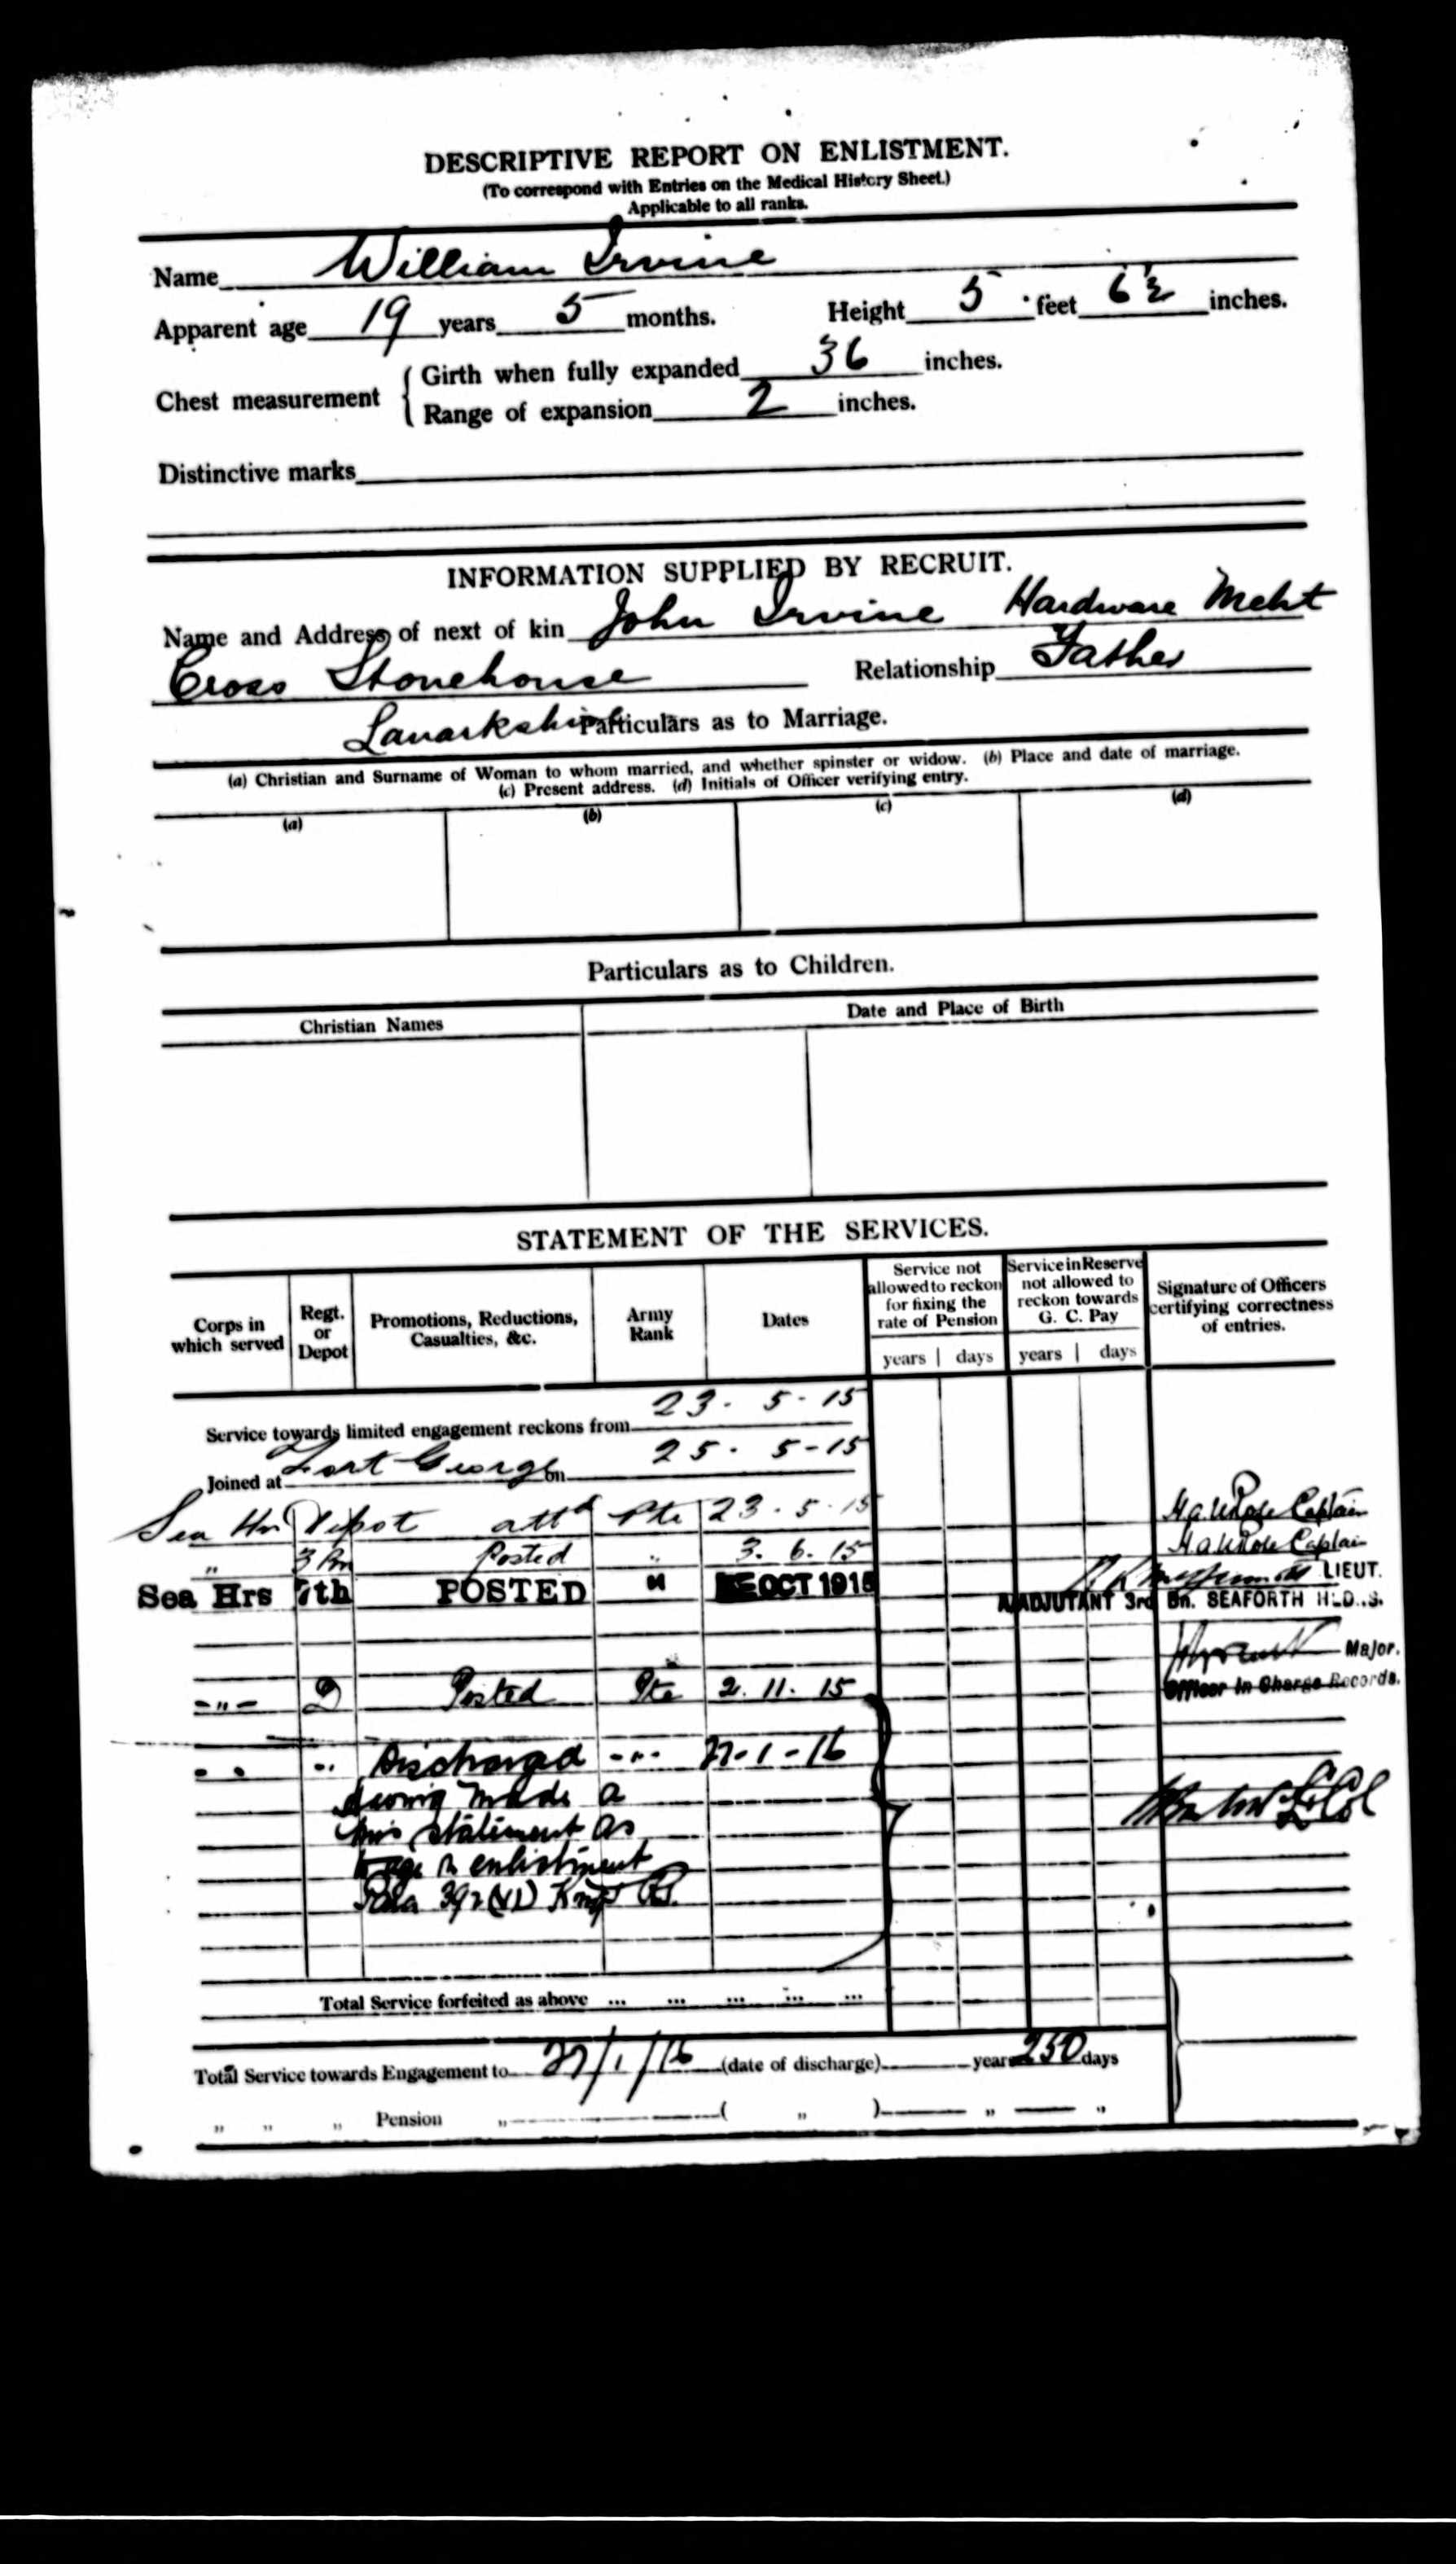 DESCRIPTIVE REPORT ON ENLISTMENT.
(To correspond with Entries on the Medical History Sheet.)
Applicable to all ranks.
Name William Irvine
Apparent age 19 years 5 months. Height 5 feet 6½ inches.
Chest measurement { Girth when fully expanded 36 inches.
Range of expansion 2 inches.
Distinctive marks
INFORMATION SUPPLIED BY RECRUIT.
Name and Address of next of kin John Irvine Hardware Mcht
Cross Stonehouse Relationship Father
Lanarkshire Particulars as to Marriage.
(a) Christian and Surname of Woman to whom married, and whether spinster or widow. (b) Place and date of marriage.
(c) Present address. (d) Initials of Officer verifying entry.
(a) (b) (c) (d)
Particulars as to Children.
Christian Names Date and Place of Birth
STATEMENT OF THE SERVICES.
Corps in which served Regt. or Depot Promotions, Reductions, Casualties, &c. Army Rank Dates Service not allowed to reckon for fixing the rate of Pension Service in Reserve not allowed to reckon towards G. C. Pay Signature of Officers certifying correctness of entries.
years days years days
Service towards limited engagement reckons from 23. 5-15
Joined at Fort George on 25. 5-15
Sea Hrs Depot attd Pte 23. 5. 15 Captain
" 3 Bn Posted " 3. 6. 15 Captain
Sea Hrs 7th POSTED " OCT 1915 LIEUT.
A/ADJUTANT 3rd Bn. SEAFORTH HLD..S.
Major.
-"- 2 Posted Pte 2. 11. 15 Officer in Charge Records.
" " " Discharged -"- 27-1-16
having made a
mis statement as
to age on enlistment
Para 392 (VI) Kings R. Lt Col
Total Service forfeited as above ... ... ... ... ...
Total Service towards Engagement to 27/1/16 (date of discharge) years 250 days
" " " Pension " ( " ) " "